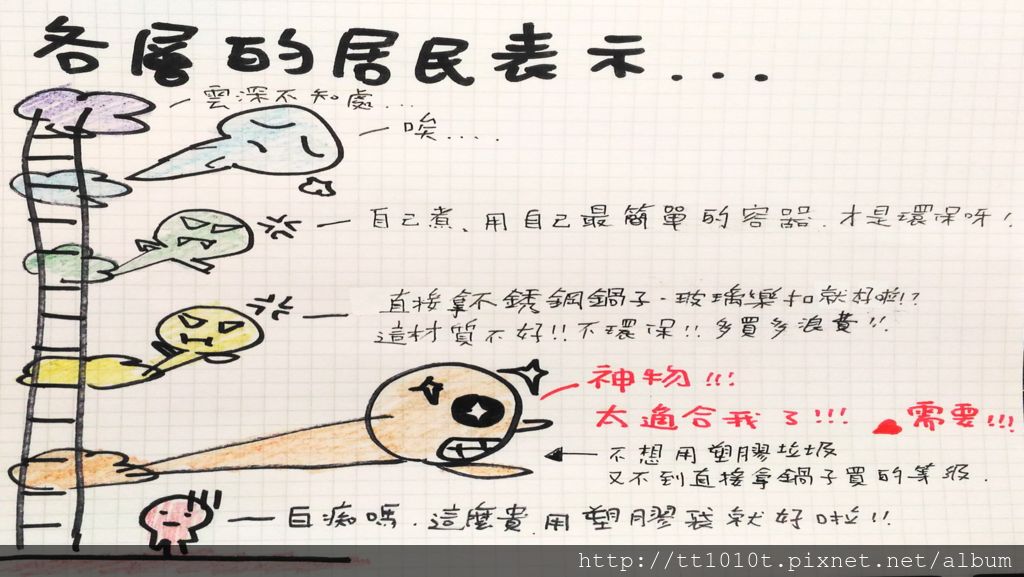 各層的居民表示...
雲深不知處...
唉....
自己煮、用自己最簡單的容器.才是環保呀!
直接拿不銹鋼鍋子.玻璃樂扣就好啦!?
這材質不好!!不環保!!多買多浪費!!
神物!!!
太適合我了!!! 需要!!!
不想用塑膠垃圾
又不到直接拿鍋子買的等級.
白痴嗎.這麼貴.用塑膠袋就好啦!!
http://tt1010t.pixnet.net/album